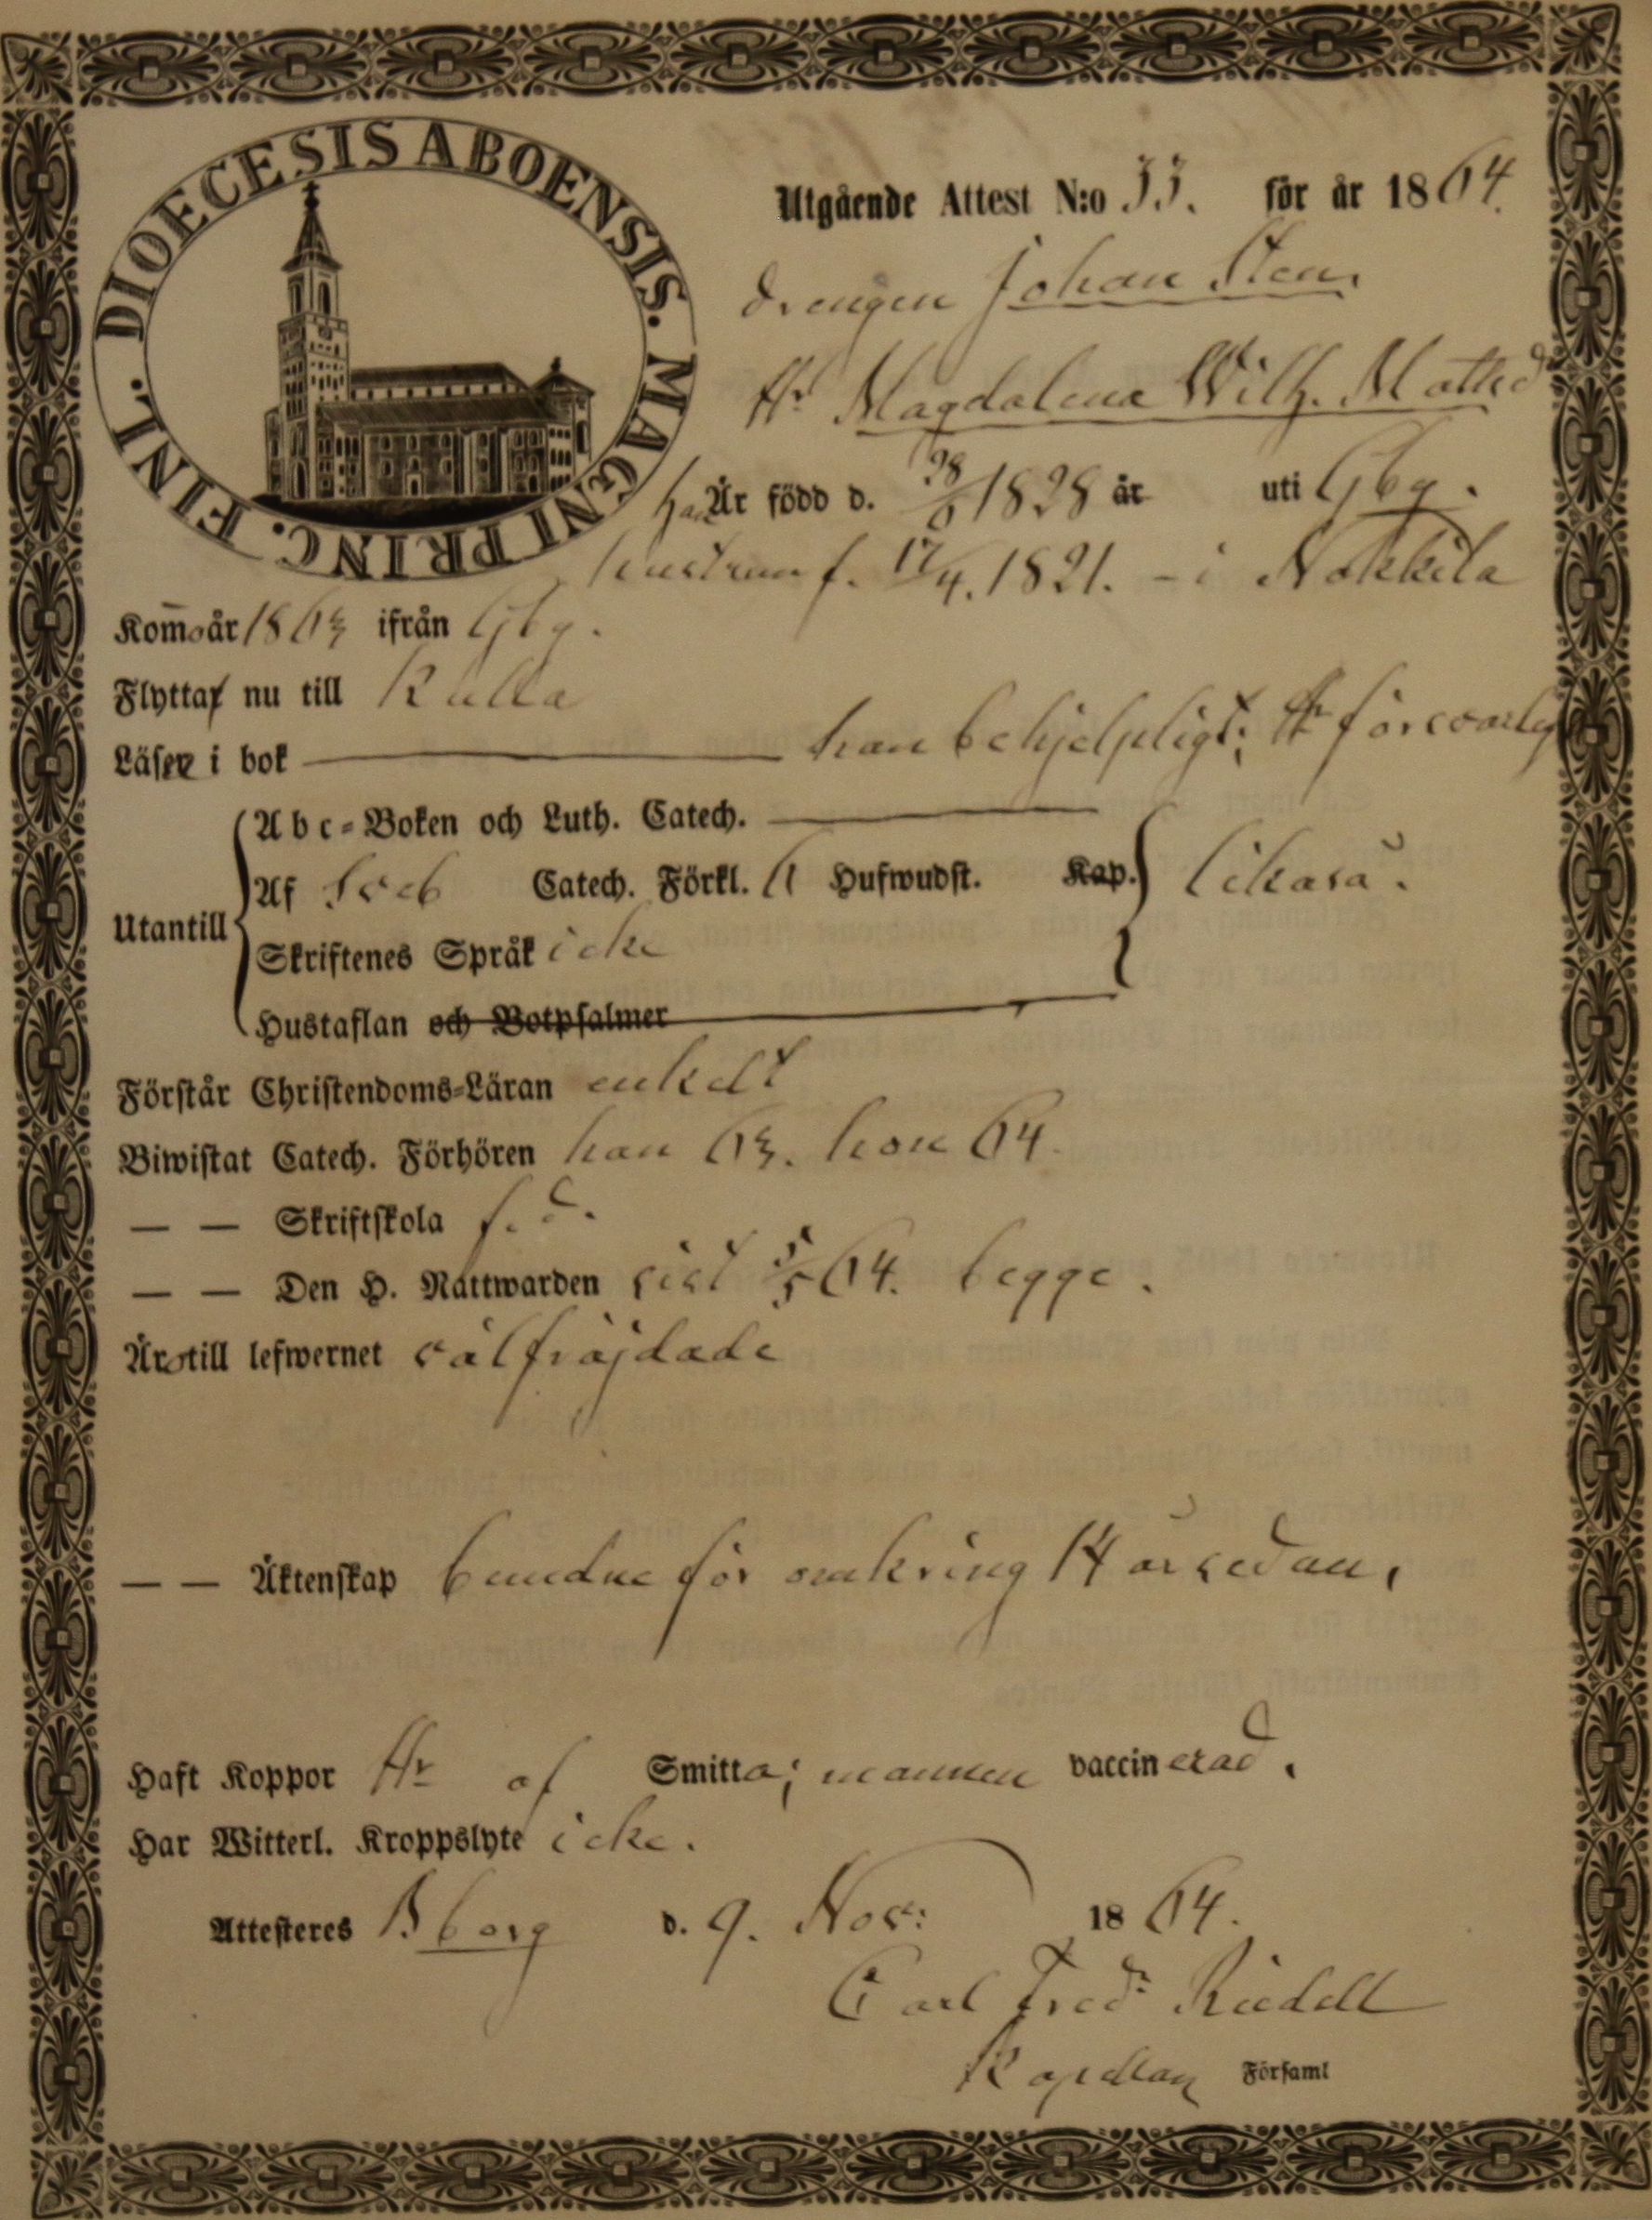 DIOECESIS ABOENSIS. MAGNI PRINC. FINL.
Utgående Attest N:o 33. för år 1864.
drengen Johan Sten,
Hr Magdalena Wilh. Mattsd
han Är född d. 28/6 1828 år uti Gbg.
hustrun f. 17/4. 1821. - i Nakkila
Komo år 1863 ifrån Gbg.
Flyttar nu till Kulla
Läser i bok han behjelpligt; Hr försvarligt
Abc-Boken och Luth. Catech.
Af Sveb Catech. Förkl. 6 Hufwudst. Kap. likaså.
Utantill
Skriftenes Språk icke
Hustaflan och Botpsalmer
Förstår Christendoms-Läran enkelt
Biwistat Catech. Förhören han 63. hon 64.
— — Skriftskola f. d.
— — Den H. Nattwarden sist 5/5 64. begge.
Äro till lefwernet välfräjdade
— — Äktenskap bundne för omkring 14 år sedan,
Haft Koppor Hr af Smitta; mannen vaccinerad.
Har Witterl. Kroppslyte icke.
Attesteres Bborg d. 9. Nov: 1864.
Carl Fredr Riedell
Kapellan Församl